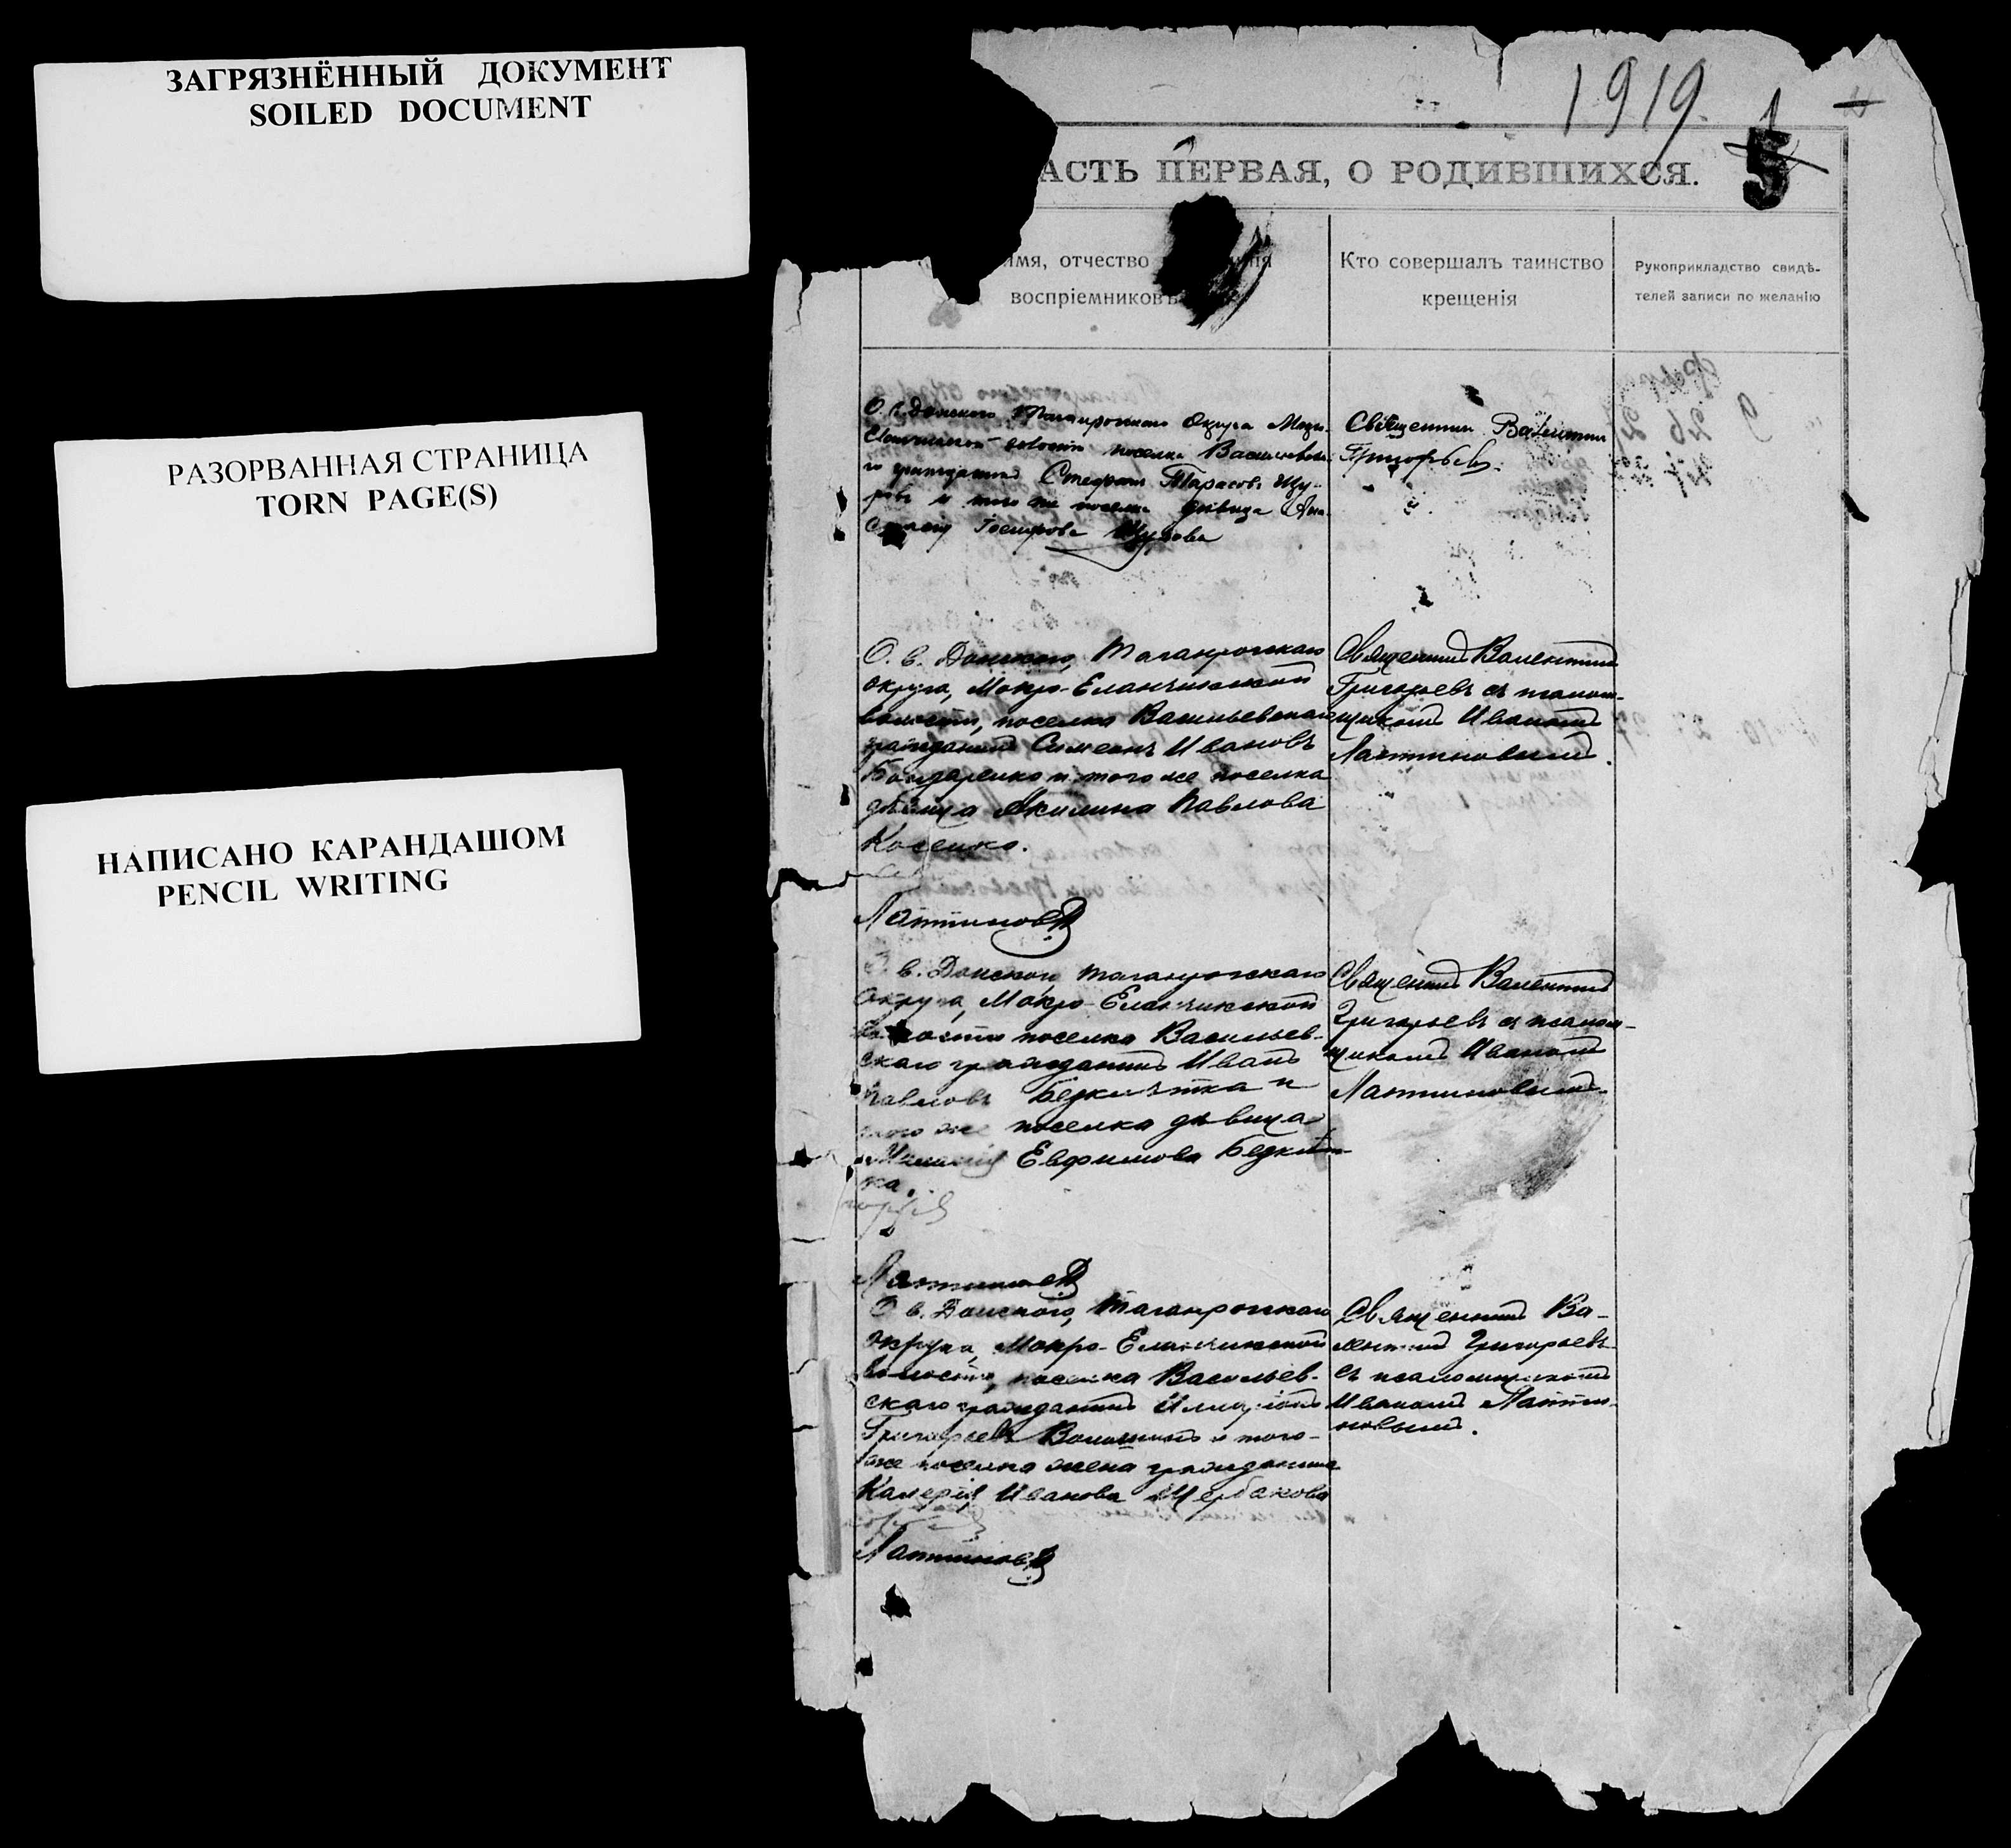 ЗАГРЯЗНЁННЫЙ ДОКУМЕНТ
SOILED DOCUMENT
РАЗОРВАННАЯ СТРАНИЦА
TORN PAGE(S)
НАПИСАНО КАРАНДАШОМ
PENCIL WRITING
1919.
5
АСТЬ ПЕРВАЯ, О РОДИВШИХСЯ.
Имя, отчество
воспріемниковъ
Кто совершалъ таинство
крещенія
Рукоприкладство свидѣ-
телей записи по желанію
О. в. Донского, Таганрогскаго Округа Мокро-
волости поселка Васильевска-
го гражданинъ Стефанъ Тарасовъ Щу-
ровъ и того же поселка дѣвица Ана-
стасія Щурова
Священникъ Валентинъ
Григорьевъ
О. в. Донского, Таганрогскаго
округа, Мокро-Еланчикской
волости, поселка Васильевскаго
гражданинъ Симеонъ Ивановъ
Бондаренко и того же поселка
дѣвица Акилина Павлова
Косенко.
Священникъ Валентинъ
Григорьевъ съ псалом-
щикомъ Иваномъ
Лаптиновымъ.
Лаптиновъ
О. в. Донского Таганрогскаго
округа, Мокро-Еланчикской
волости поселка Васильев-
скаго гражданинъ Иванъ
Павловъ и
того же поселка дѣвица
Евфимова
ка.
Священникъ Валентинъ
Григорьевъ съ псалом-
щикомъ Иваномъ
Лаптиновымъ.
Лаптиновъ
О. в. Донского, Таганрогскаго
округа, Мокро-Еланчикской
волости, поселка Васильев-
скаго гражданинъ Иларіонъ
Григорьевъ Волошинъ и того-
же поселка жена гражданина
Калерія Иванова Щербакова
Священникъ Ва-
лентинъ Григорьевъ
съ псаломщикомъ
Иваномъ Лаптин-
новымъ.
Лаптиновъ